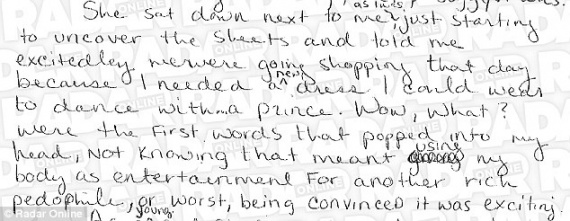 as I
She sat down next to me, just starting
to uncover the sheets and told me
excitedley. wewere going shopping that day
because I needed a new dress I could wear
to dance with a prince. Wow, what?
were the first words that popped into my
head, Not knowing that meant using my
body as entertainment for another rich
pedophile, or worst, being convinced it was exciting
young
© Radar Online
RADAR ONLINE